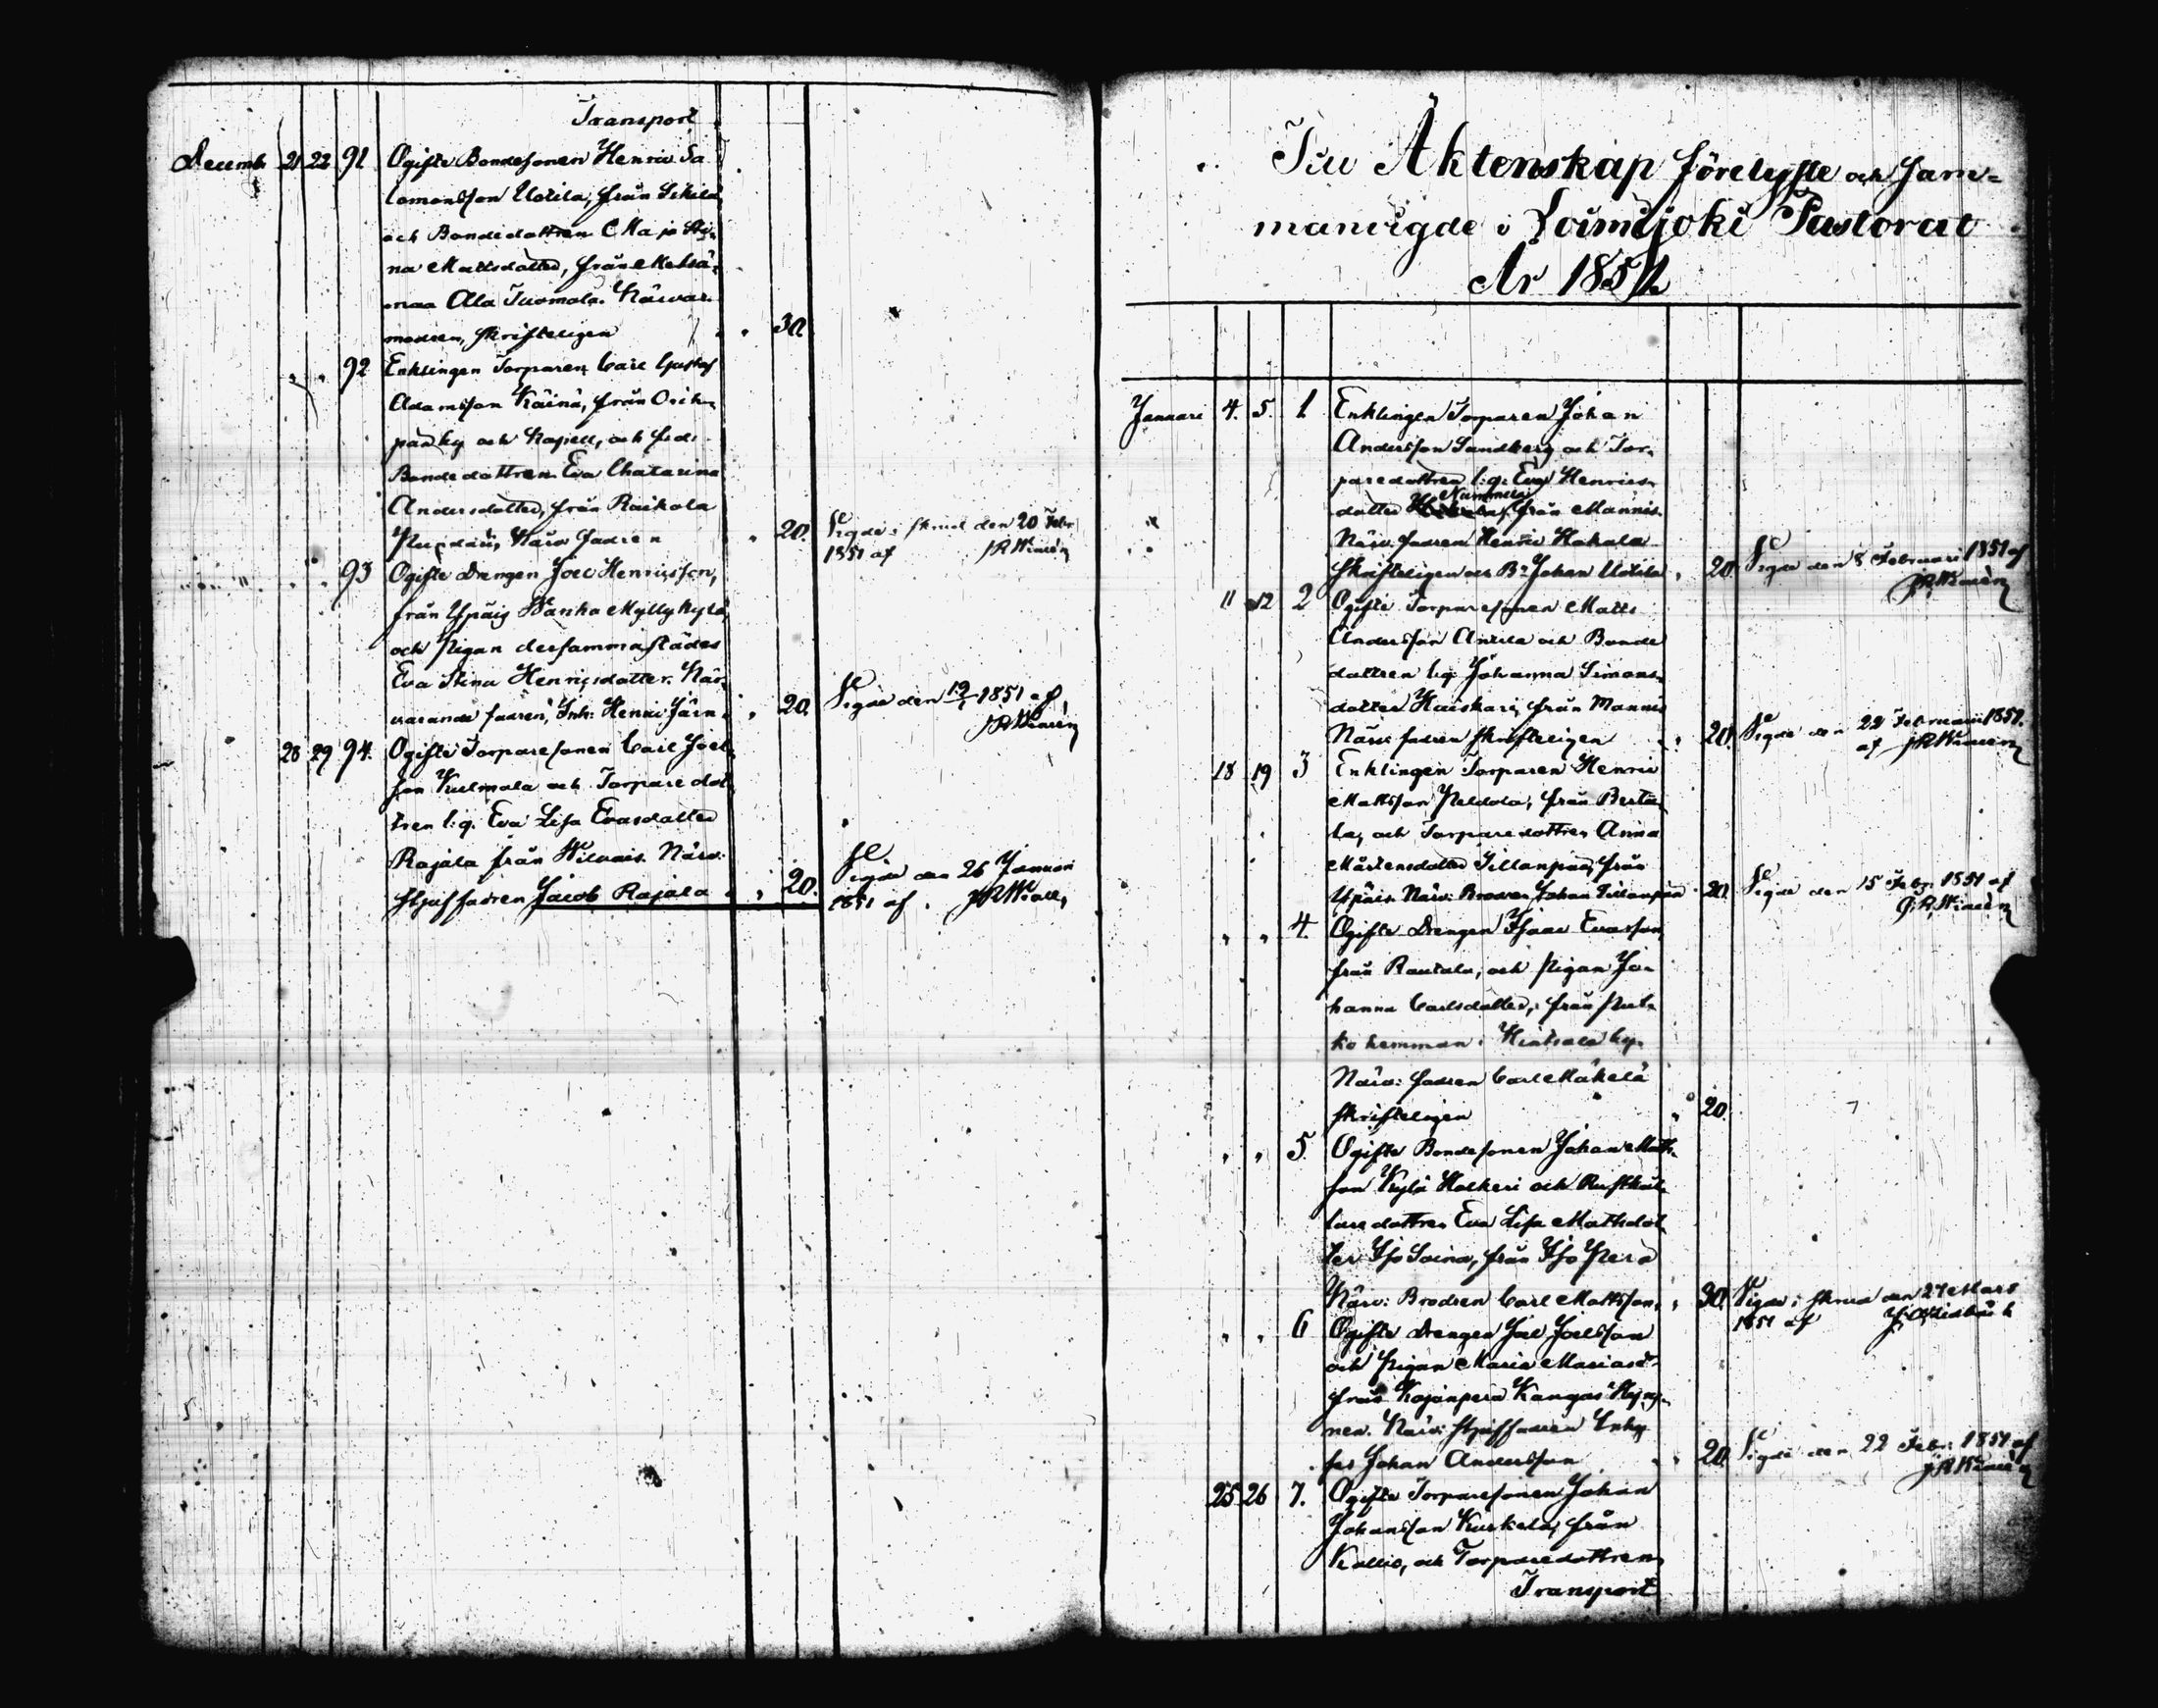 Transport
Decemb: 21 22 91 Ogifte Bondesonen Henric Sa
lomonsson Uotila, från
och Bondedottren Maja Sti,
na Mattsdotter, från Metsä,
maa Ala Tuomola. Närvar.
modren, skrifteligen " 30.
" " 92 Enklingen Torparen Carl Gustaf
Adamsson Käinä, från Orih,
pää by och Kapell, och
Bondedottren Eva Chatarina
Andersdotter, från Raikola
Närv fadren " 20. Vigde i Skrud den 20 Febr
1851 af
" " 93 Ogifte Drengen Joel Henricsson,
från Ypäjä Wanha Myllykylä,
och Pigan dersammastädes
Eva Stina Henricsdotter. När,
varande fadren, Inh: Henric Järn " 20. Vigde den 12/1 1851 af
28 29 94. Ogifte Torparesonen Carl Joels
son Kulmala och Torparedot,
tren l:g. Eva Lisa Evasdotter
Rajala från Hilvais. Närv:
Styffadren Jacob Rajala " 20. Vigde den 26 Januari
1851 af
Til Äktenskap förelyste och Sam=
manvigde i Loimijoki Pastorat
År 1851
Januari 4. 5. 1 Enklingen Torparen Johan
Andersson Sandberg och Tor,
paredottren l:g: Eva Henrics,
dotter Nummela, från Männis.
Närv. fadren Henric Hakala
Skrifteligen och Br Johan Uotila " 20. Vigde den 8 Februari 1851 af
11 12 2 Ogifte Torparesonen Matts
Andersson Anttila och Bonde
dottren l:g: Johanna Simons,
dotter Haiskari, från Männis
Närv: fadren skrifteligen " 20. Vigde den 22 Februarii 1851.
af
18 19 3 Enklingen Torparen Henric
Mattsson Peldola, från Bertu
la, och Torparedottren Anna
Mårtensdotter Sillanpää, från
Ypäis. Närv: Brodren Johan Sillanpää 20. Vigde den 15 Febr. 1851 af
" " 4. Ogifte Drengen Isaac Evasson,
från Rautala, och Pigan Jo,
hanna Carlsdotter, från
ko hemman i Hirtsala by.
Närv: fadren Carl Mäkelä
skrifteligen " 20.
" " 5. Ogifte Bondesonen Johan Matts,
son Kylä Holkeri och Rusthål,
lare dottren Eva Lisa Mattsdot
ter Iso Soini, från Iso Perä
Närv: Brodren Carl Mattsson, " 30. Vigde i Skrud den 27 Mars
1851 af
" " 6 Ogifte Drengen Joel Joelsson
och Pigan Maria Mariasd:r
från Kojonperä Kangas
nen. Närv: Styffadren Inhy,
ses Johan Andersson " 20. Vigde den 22 Febr. 1851 af
25 26 7. Ogifte Torparesonen Johan
Johansson Kuskela, från
Kallio, och Torparedottren
Transport